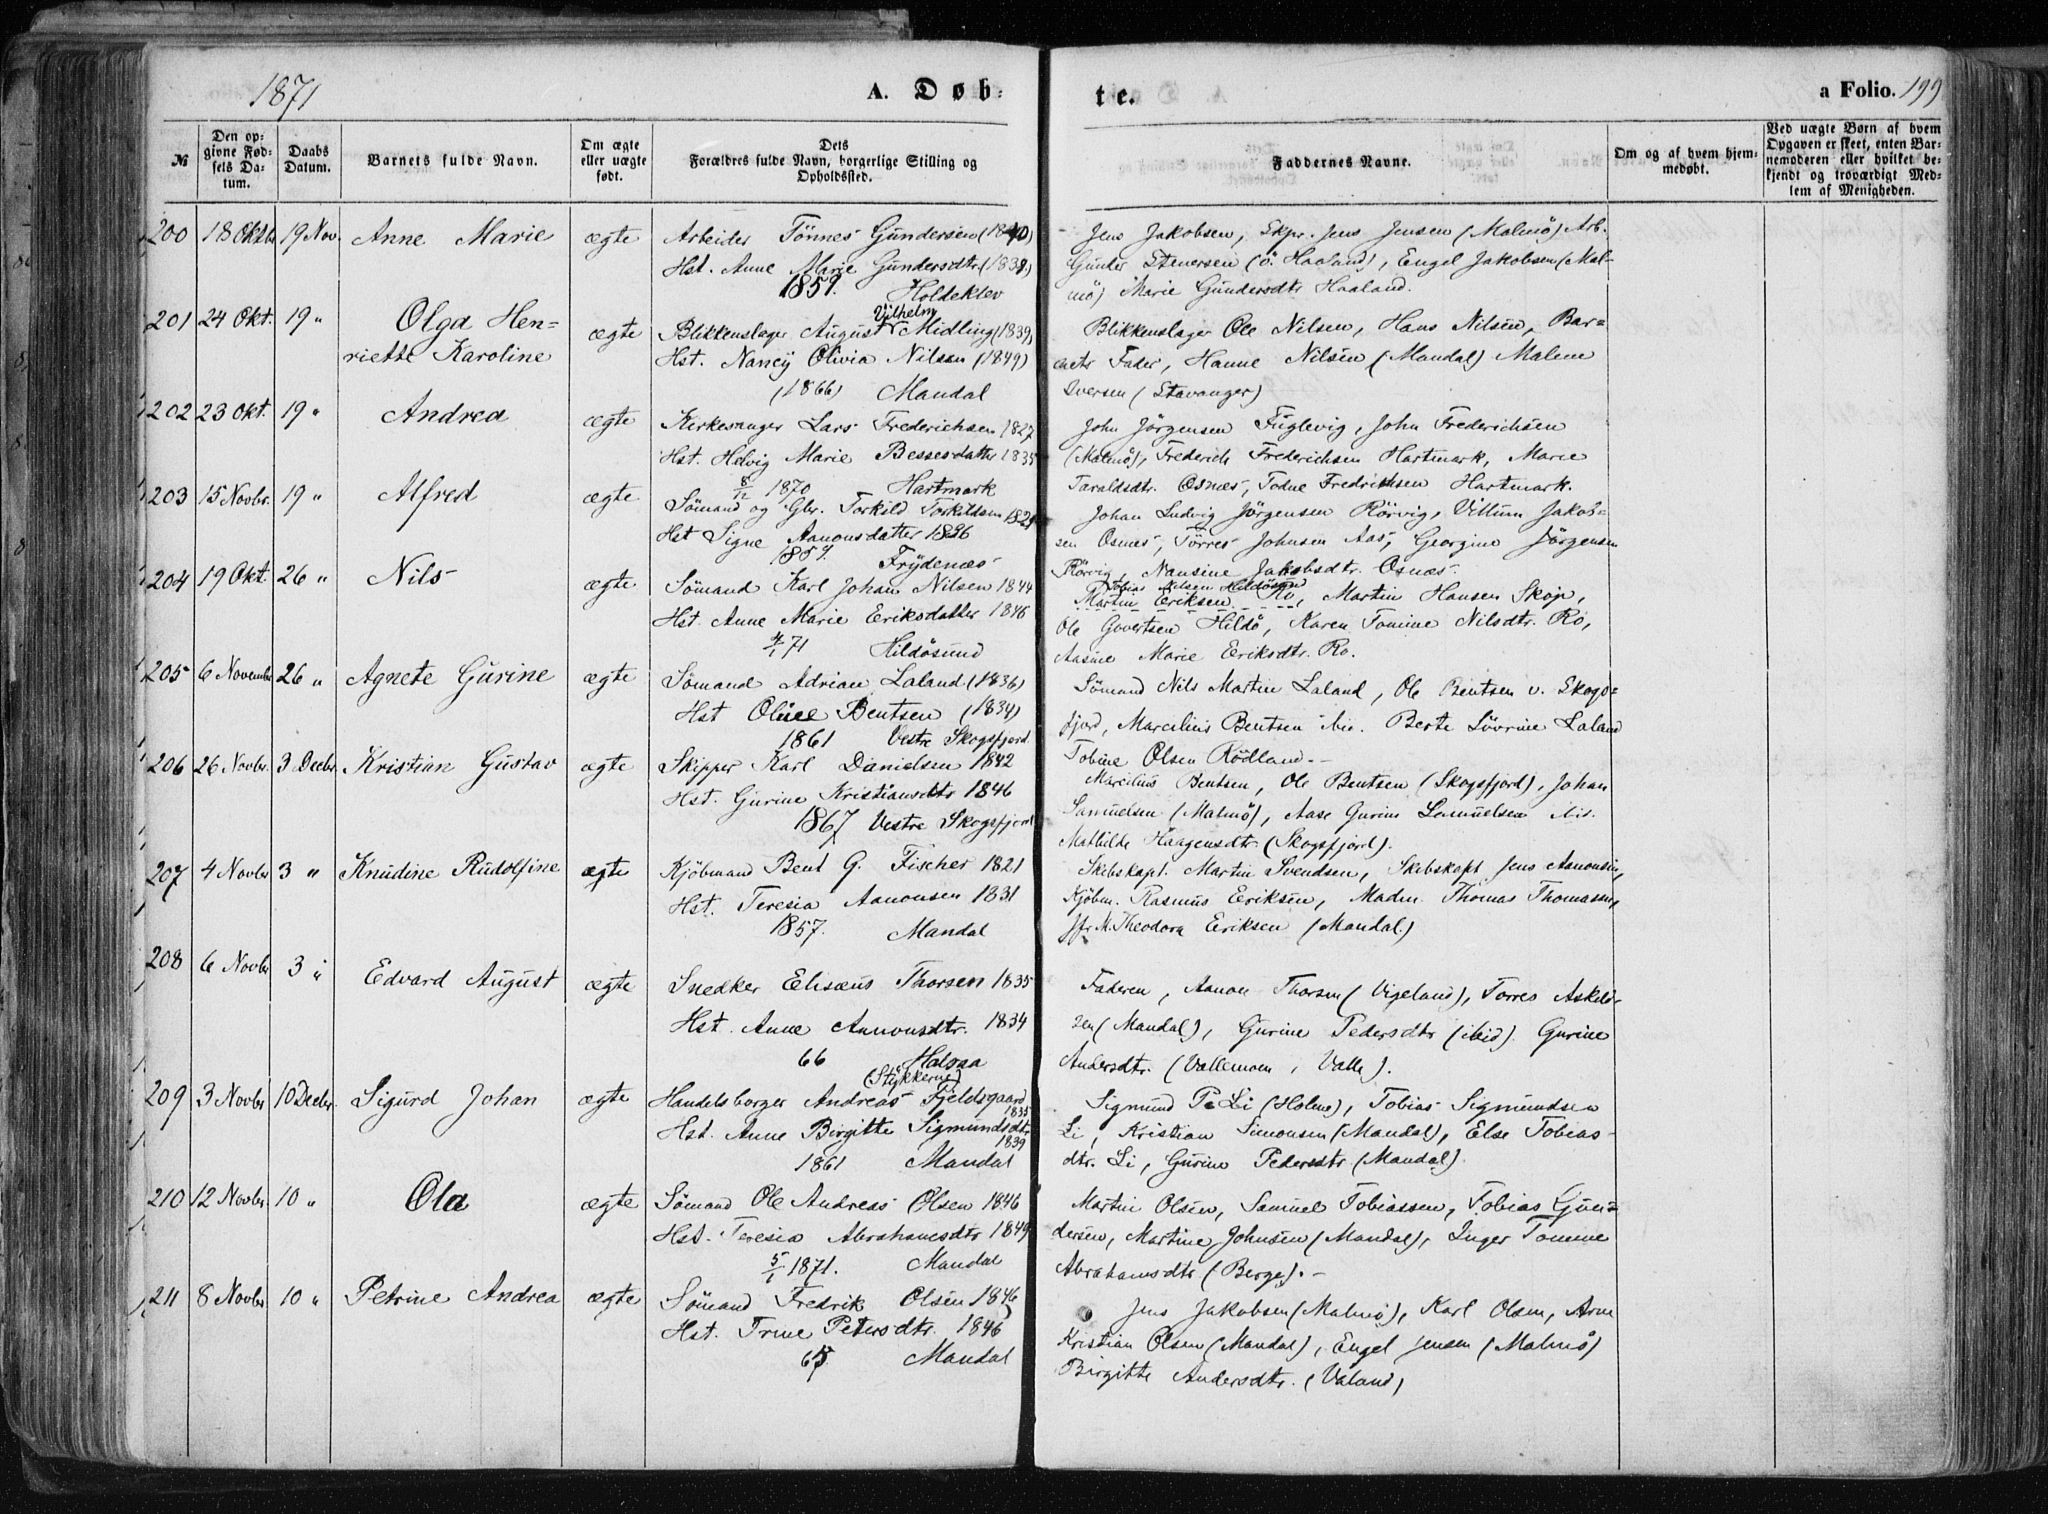 1871
A. Døb-
te.
a Folio. 199
№
Den op-
givne Fød-
sels Da-
tum.
Daabs
Datum.
Barnets fulde Navn.
Om ægte
eller uægte
født.
Dets
Forældres fulde Navn, borgerlige Stilling og
Opholdssted.
Faddernes Navne.
Om og af hvem hjem-
medøbt.
Ved uægte Børn af hvem
Opgaven er skeet, enten Bar-
nemoderen eller hvilket be-
kjendt og troværdigt Med-
lem af Menigheden.
200 18 Oktbr 19 Nov. Anne Marie ægte
Arbeider Tönnes Gundersen (1840)
Hst. Anne Marie Gundersdtr.
1859. Holdeklev
Jens Jakobsen, Skpr. Jens Jensen (Malmö) Arb.
Gunder Stenersen (ö. Haaland), Engel Jakobsen (Mal-
mö) Marie Gundersdtr Haaland.
201 24 Okt. 19 " Olga Hen-
riette Karoline ægte
Vilhelm
Blikkenslager August Midling (1839)
Hst. Nancÿ Olivia Nilsen (1849)
(1866) Mandal
Blikkenslager Ole Nilsen, Hans Nilsen, Bar-
nets Fader, Hanne Nilsen (Mandal) Malene
Iversen (Stavanger)
202 23 Okt. 19 " Andrea ægte
Kirkesanger Lars Frederichsen 1827
Hst. Helvig Marie Bessesdatter 1835
8/12 1870 Hartmark
John Jörgensen Fuglevig, John Frederichsen
(Malmö), Frederich Frederichsen Hartmark, Marie
Taraldsdtr. Osnæs, Todne Fredrichsen Hartmark.
203 15 Novbr. 19 " Alfred ægte
Sömand og Gbr. Torkild Torkildsen
Hst Signe Aanonsdatter 1836
1857 Frÿdenæs
Johan Ludvig Jörgensen Rörvig, Villum Jakob-
sen Osnæs, Törres Johnsen Aas, Georgine Jörgensen
Rörvig, Nansine Jakobsdtr. Osnæs.
204 19 Okt. 26 " Nils ægte
Sömand Karl Johan Nilsen 1844
Hst. Anne Marie Eriksdatter 1846
4/1 71 Hildösund
Tobias Nilsen Hildösund
Martin Eriksen Ro, Martin Hansen Skøje,
Ole Govertsen Hildö, Karen Tomine Nilsdtr. Ro,
Aasine Marie Eriksdtr. Ro.
205 6 Novembr 26 " Agnete Gurine ægte
Sömand Adrian Laland (1836)
Hst Oline Bentsen (1834)
1861 Vestre Skogsfjord
Sömand Nils Martin Laland, Ole Bentsen v. Skogs-
fjord, Marcilius Bentsen ibid. Berte Sövrine Laland
Tobine Olsen Rödland.-
206 26 Novbr. 3 Decbr. Kristian Gustav ægte
Skipper Karl Danielsen 1842
Hst. Gurine Kristiansdtr 1846
1867 Vestre Skogsfjord
Marcilius Bentsen, Ole Bentsen (Skogsfjord), Johan
Samuelsen (Malmö), Aase Gurine Samuelsen ibid.
Mathilde Haagensdtr (Skogsfjord).
207 4 Novbr 3 " Knudine Rudolfine ægte
Kjöbmand Bent G. Fischer 1821
Hst. Teresia Aanonsen 1831
1857. Mandal
Skibskapt. Martin Svendsen, Skibskapt Jens Aanonsen,
Kjöbm. Rasmus Eriksen, Madm. Thomas Thomassen,
Jfr. M. Theodora Eriksen (Mandal.)
208 6 Novbr 3 " Edvard August ægte
Snedker Elisæus Thorsen 1835
Hst. Anne Aanonsdtr. 1834
66 Halsaa
(Stÿkkerne)
Faderen, Aanon Thorsen (Vigeland), Torres Askild-
sen (Mandal), Gurine Pedersdtr (ibid). Gurine
Andersdtr. (Vallemoen, Valle).
209 3 Novbr 10 Decbr. Sigurd Johan ægte
Handelsborger Andreas Fjeldsgaard
1835
Hst. Anne Birgitte Sigmundsdtr
1839
1861 Mandal
Sigmund P. Li (Holme), Tobias Sigmundsen
Li, Kristian Simonsen (Mandal), Else Tobias-
dtr. Li, Gurine Pedersdtr (Mandal).
210 12 Novbr. 10 " Ola ægte
Sömand Ole Andreas Olsen 1846
Hst. Teresia Abrahamsdtr 1849
5/1 1871. Mandal
Martin Olsen, Samuel Tobiassen, Tobias Gun-
dersen, Martine Johnsen (Mandal), Inger Tomine
Abrahamsdtr (Berge).-
211 8 Novbr 10 " Petrine Andrea ægte
Sömand Fredrik Olsen 1846
Hst. Trine Petersdtr. 1846
65 Mandal
Jens Jakobsen (Malmö), Karl Olsen, Arne
Kristian Olsen (Mandal), Engel Jensen (Malmö)
Birgitte Andersdtr. (Valand)